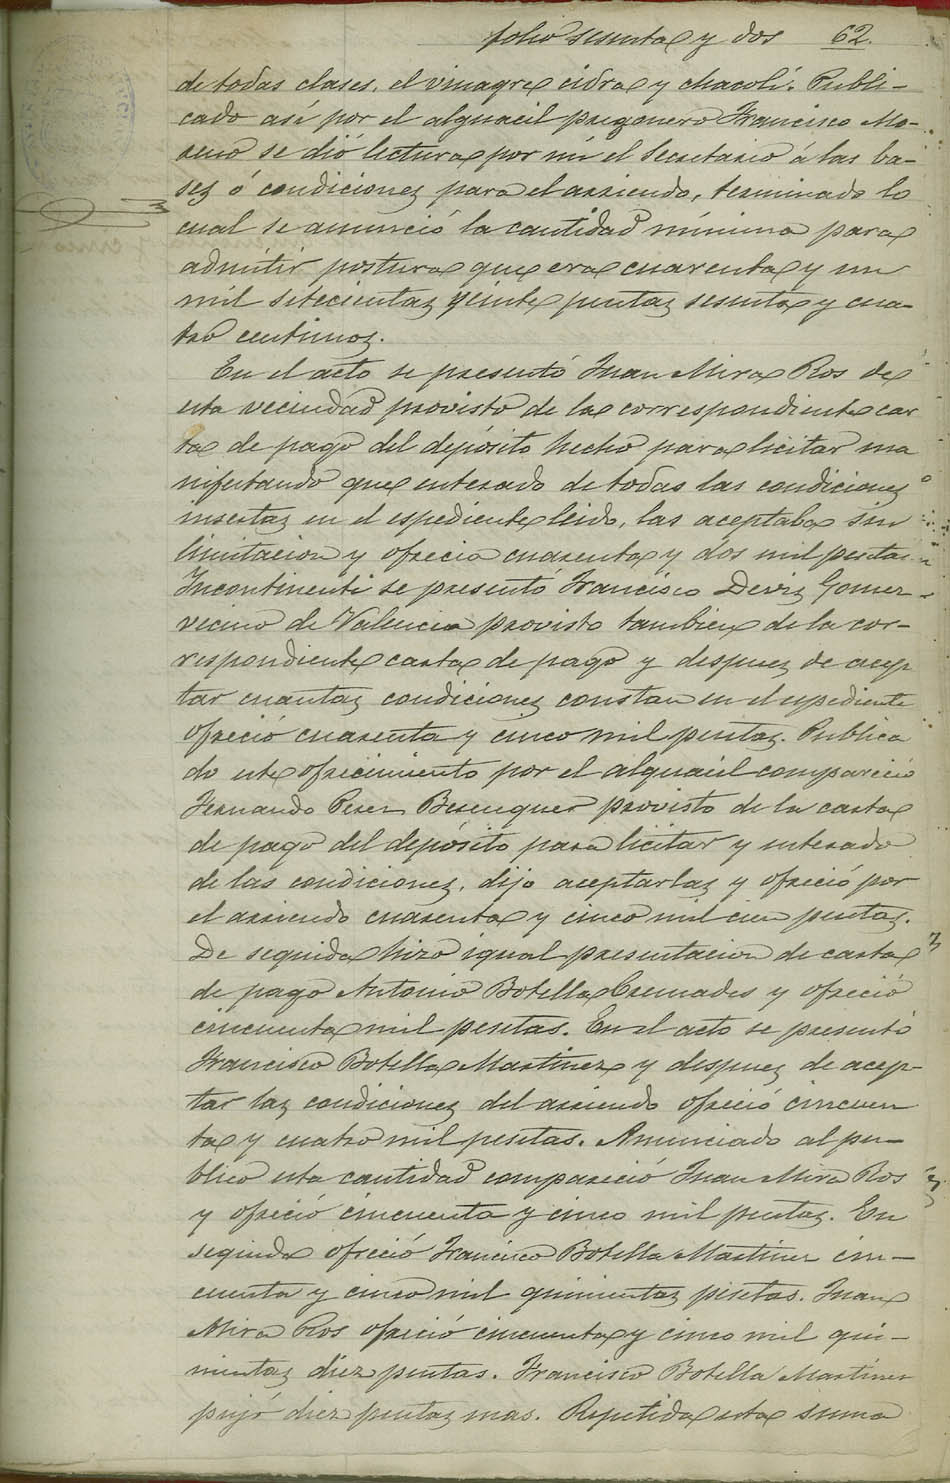 folio sesenta y dos 62.
de todas clases, el vinagre cidra y chacolí. Publi-
cado así por el alguacil pregonero Francisco Mo-
reno se dió lectura por mí el Secretario á las ba-
ses ó condiciones para el arriendo, terminado lo
cual se anunció la cantidad mínima para
admitir postura que era cuarenta y un
mil setecientas veinte pesetas sesenta y cua-
tro centimos.
En el acto se presentó Juan Mira Ros de
esta vecindad provisto de la correspondiente car
ta de pago del depósito hecho para licitar ma
nifestando que enterado de todas las condiciones
insertas en el espediente leido, las aceptaba sin
limitacion y ofrecia cuarenta y dos mil pesetas.
Incontinenti se presentó Francisco Gomez
vecino de Valencia provisto tambien de la cor-
respondiente carta de pago y despues de acep
tar cuantas condiciones constan en el espediente
ofreció cuarenta y cinco mil pesetas. Publica
do este ofrecimiento por el alguacil compareció
Fernando Perez Berenguer provisto de la carta
de pago del depósito para licitar y enterado
de las condiciones, dijo aceptarlas y ofreció por
el arriendo cuarenta y cinco mil cien pesetas.
De seguida hizo igual presentacion de carta
de pago Antonio Botella Cremades y ofreció
cincuenta mil pesetas. En el acto se presentó
Francisco Botella Martinez y despues de acep-
tar las condiciones del arriendo ofreció cincuen
ta y cuatro mil pesetas. Anunciado al pu-
blico esta cantidad compareció Juan Mira Ros
y ofreció cincuenta y cinco mil pesetas. En
seguida ofreció Francisco Botella Martinez cin-
cuenta y cinco mil quinientas pesetas. Juan
Mira Ros ofreció cincuenta y cinco mil qui-
nientas diez pesetas. Francisco Botella Martinez
pujó diez pesetas mas. Repetida esta suma